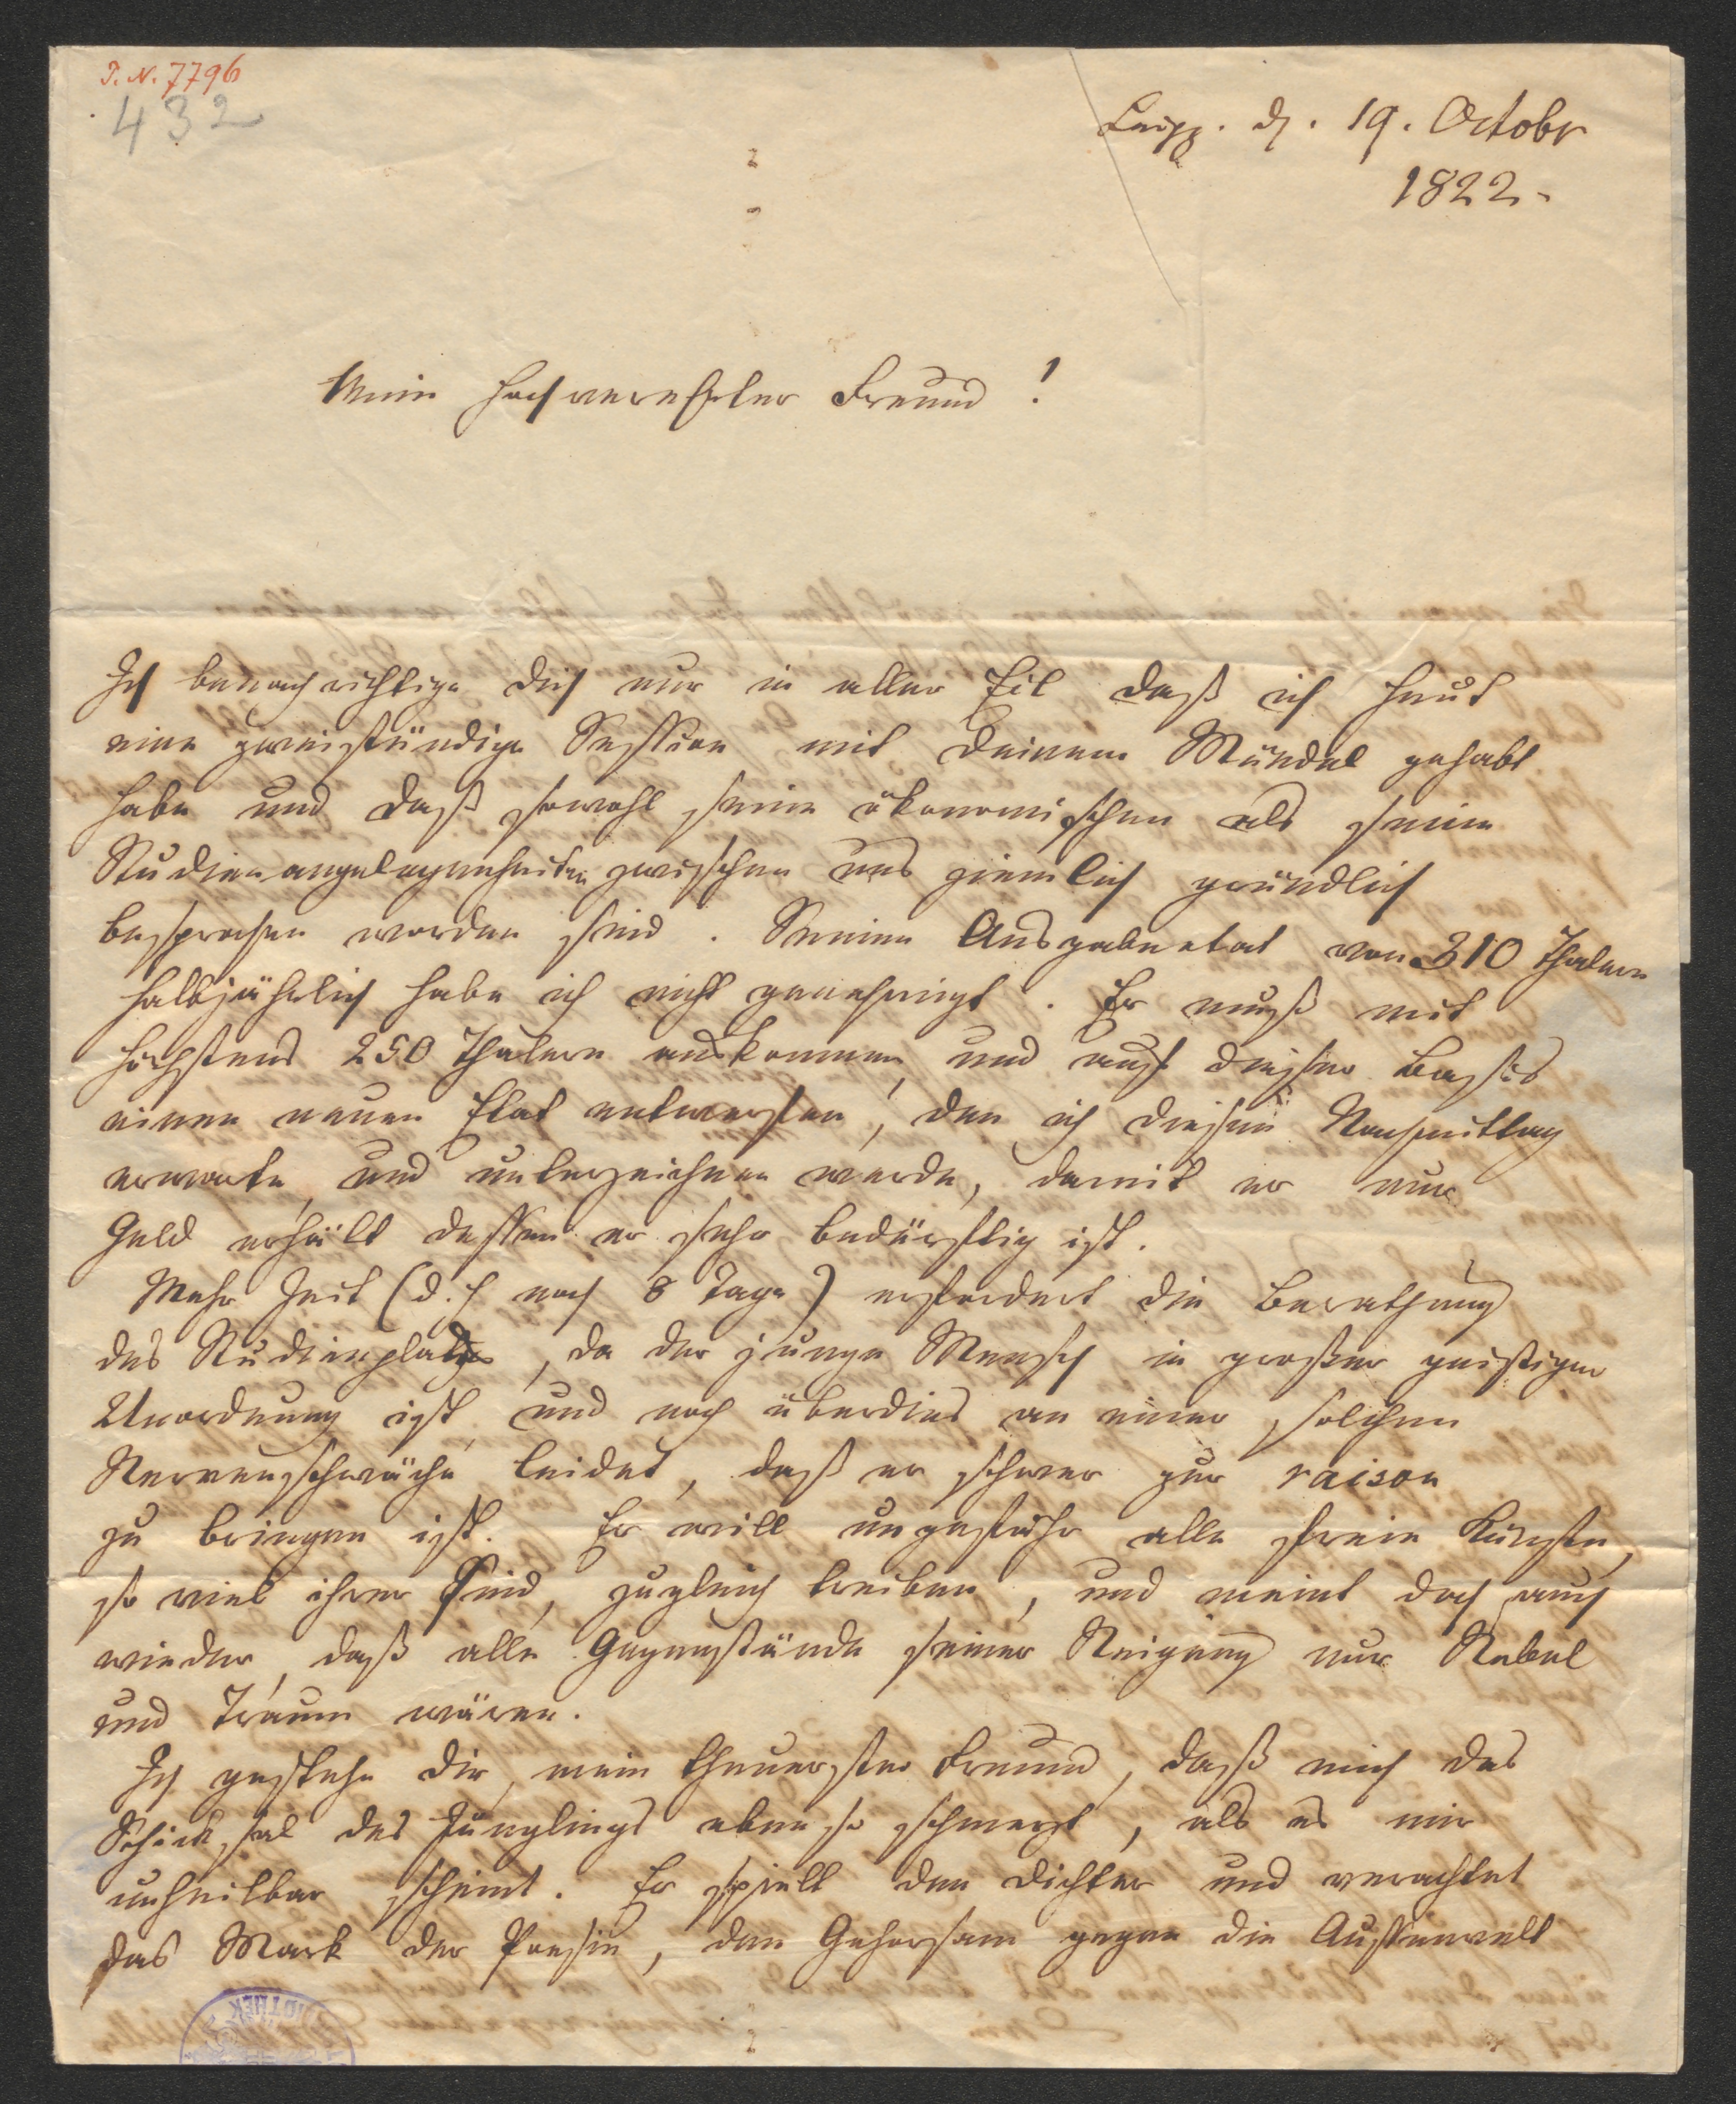 I. N. 7796
432
Leipz. d. 19. Octobr
1822.
Mein hochverehrter Freund!
Ich benachrichtige Dich nur in aller Eil daß ich heut
eine zweistündige Session mit Deinem Mündel gehabt
habe und daß sowohl seine ökonomischen als seine
Studienangelegenheiten zwischen uns ziemlich gründlich
besprochen worden sind. Seinen Ausgabeetat von 310 Thalern
halbjährlich habe ich nicht genehmigt. Er muß mit
höchstens 250 Thalern auskommen, und auf dieser Basis
einen neuen Etat entwerfen, den ich diesen Nachmittag
erwarte, und unterzeichnen werde, damit er nur
Geld erhält dessen er sehr bedürftig ist.
Mehr Zeit (d. h noch 8 Tage) erfordert die Berathung
des Studienplans, da der junge Mensch in großer geistiger
Unordnung ist, und noch überdies an einer solchen
Nervenschwäche leidet, daß er schwer zur raison
zu bringen ist. Er will ungefähr alle freie Künste,
so viel ihrer sind, zugleich treiben, und meint doch auch
wieder, daß alle Gegenstände seiner Neigung nur Nebel
und Traum wären.
Ich gestehe Dir, mein theuerster Freund, daß mich das
Schicksal des Jünglings ebenso schmerzt, als es mir
unheilbar scheint. Er spielt den Dichter und verachtet
das Mark der Poesie, den Gehorsam gegen die Aussenwelt